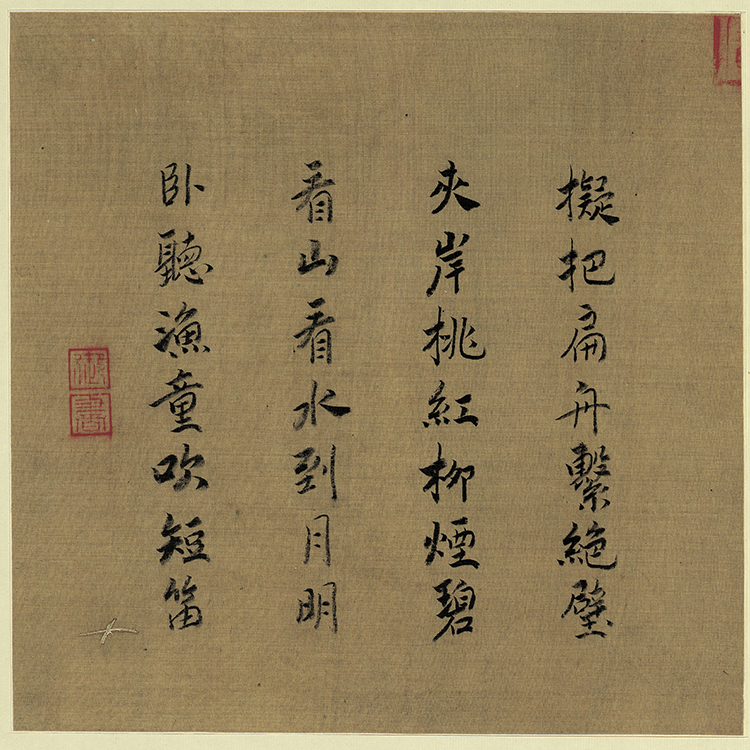 擬把扁舟繫絕壁
夾岸桃紅柳煙碧
看山看水到月明
臥聽漁童吹短笛
御書